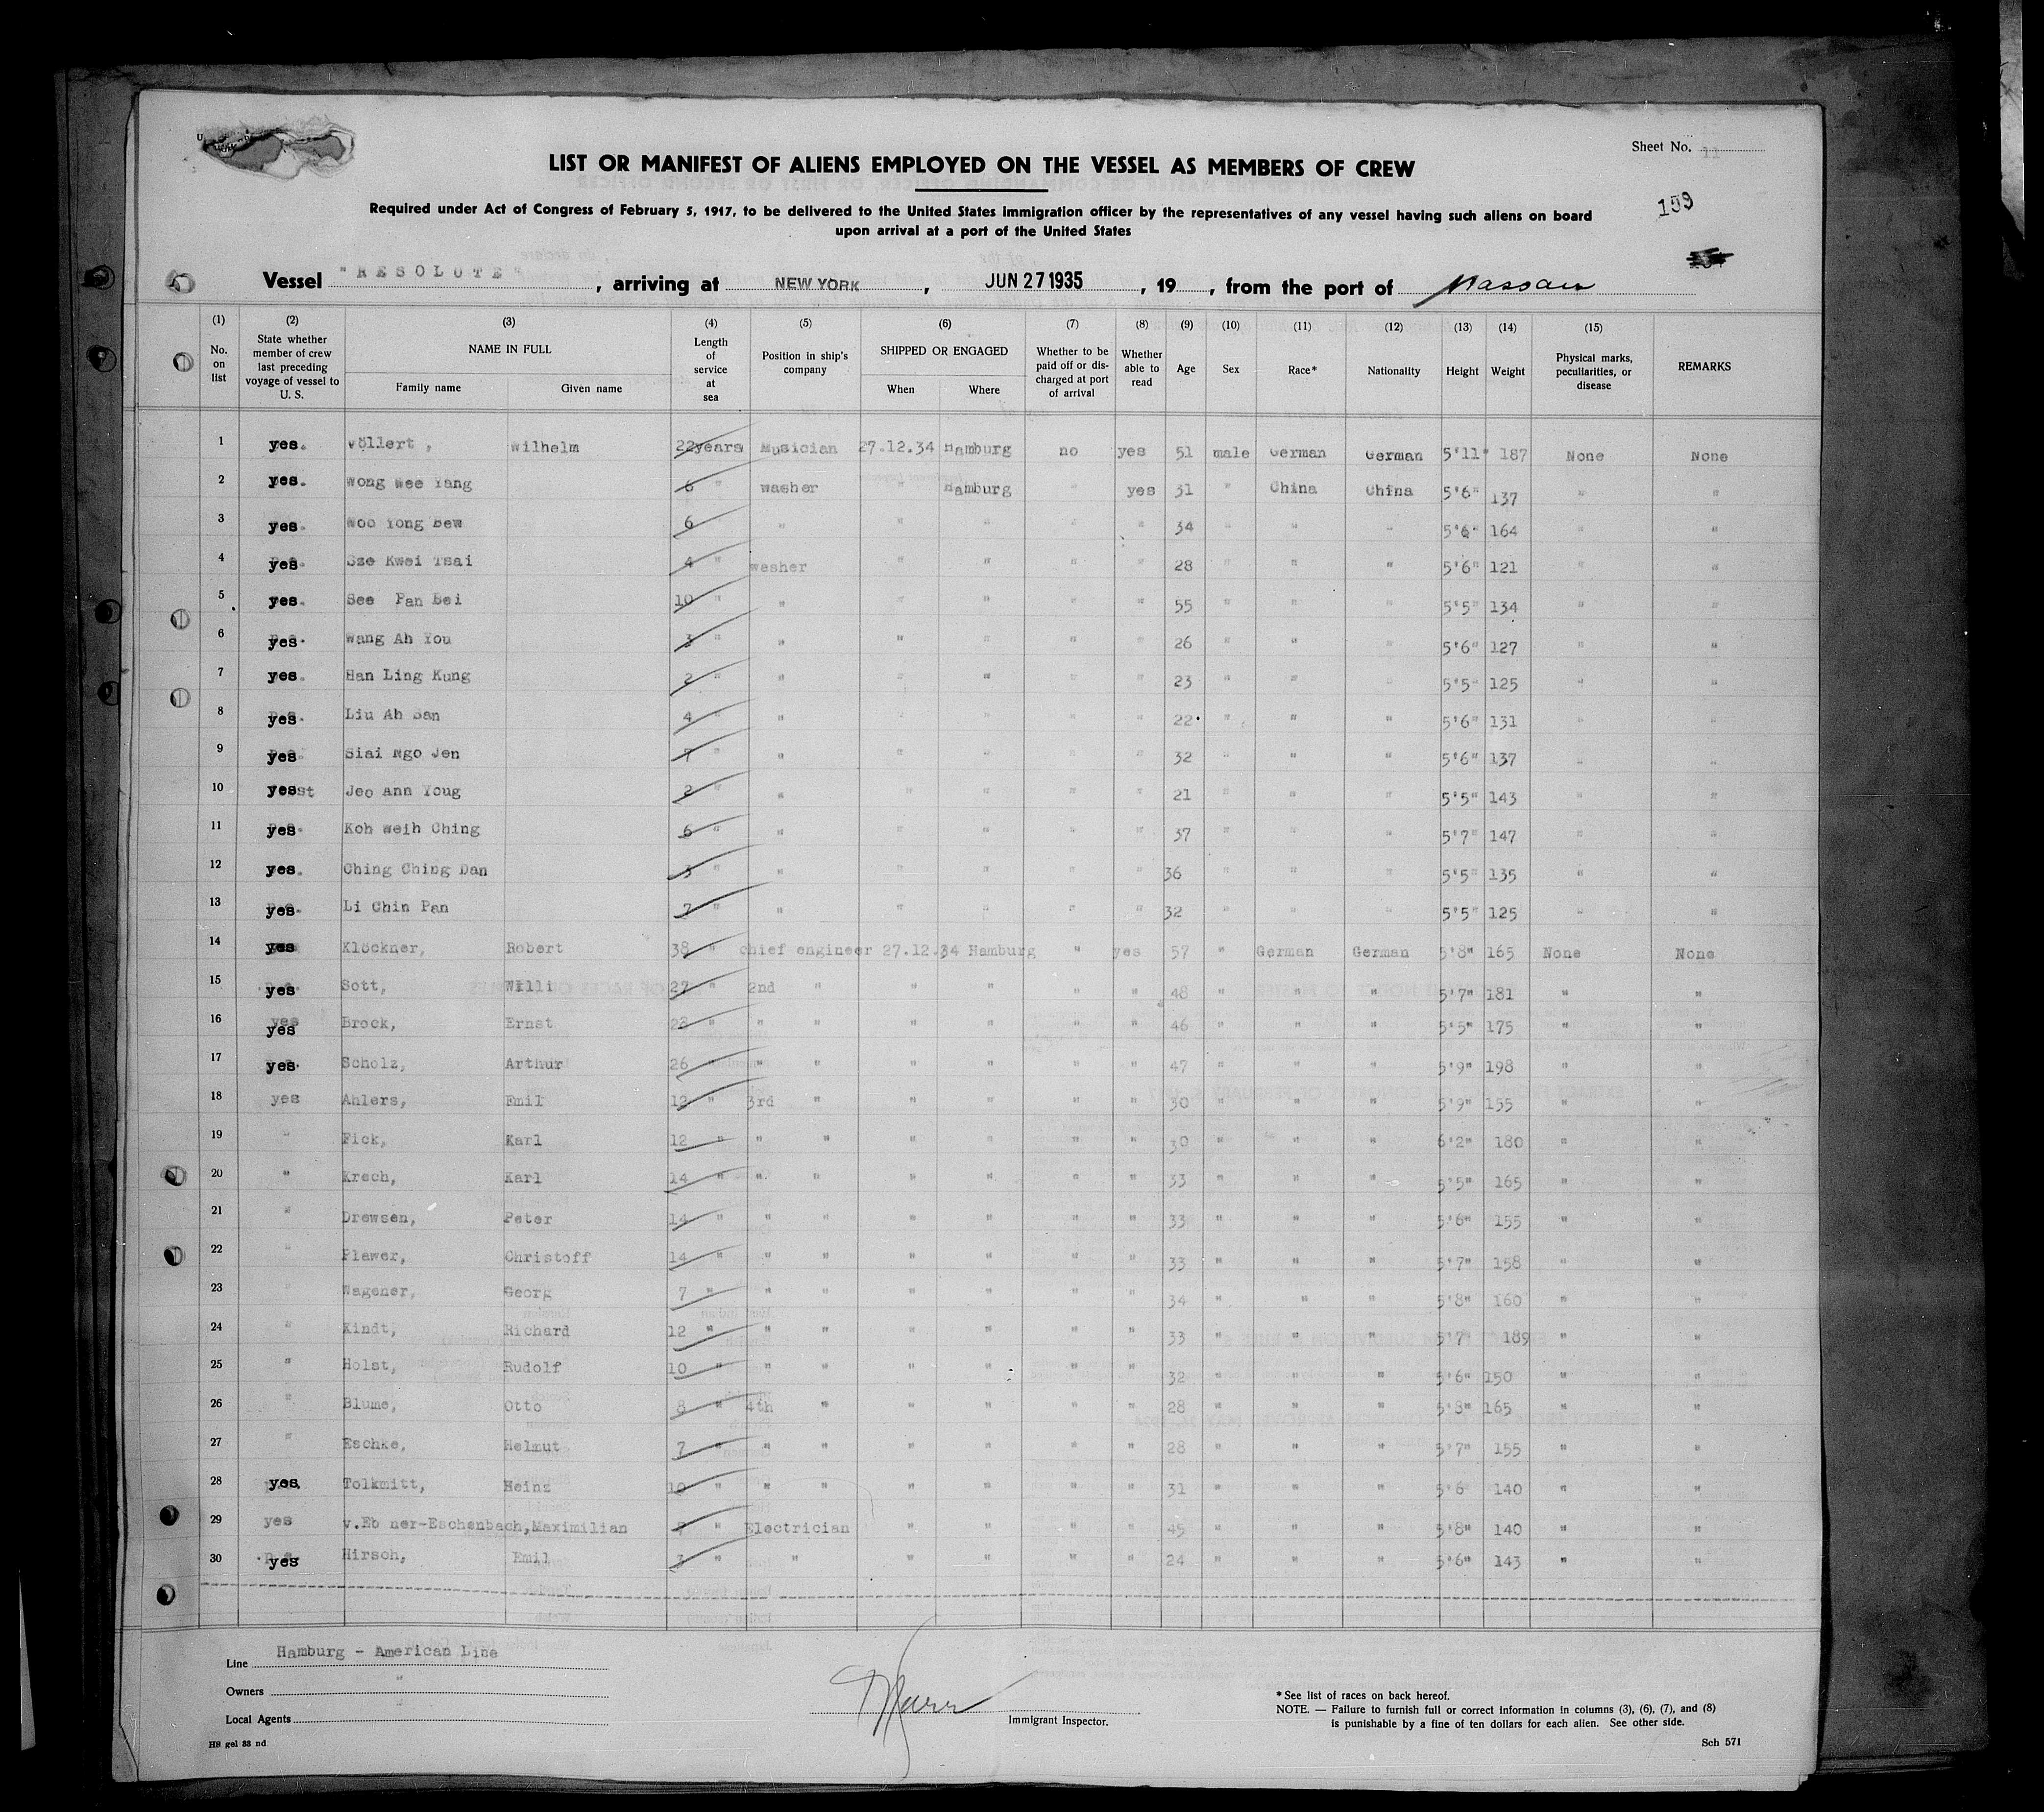 Sheet No. 11
LIST OR MANIFEST OF ALIENS EMPLOYED ON THE VESSEL AS MEMBERS OF CREW
159
Required under Act of Congress of February 5, 1917, to be delivered to the United States immigration officer by the representatives of any vessel having such aliens on board
upon arrival at a port of the United States
Vessel "RESOLUTE", arriving at NEW YORK, JUN 27 1935, 19, from the port of Nassau
(1) (2) (3) (4) (5) (6) (7) (8) (9) (10) (11) (12) (13) (14) (15)
No. on list | State whether member of crew last preceding voyage of vessel to U. S. | NAME IN FULL Family name Given name | Length of service at sea | Position in ship's company | SHIPPED OR ENGAGED When Where | Whether to be paid off or discharged at port of arrival | Whether able to read | Age | Sex | Race* | Nationality | Height | Weight | Physical marks, peculiarities, or disease | REMARKS
1 yes. Völlert, Wilhelm 22years Musician 27.12.34 Hamburg no yes 51 male German German 5'11" 187 None None
2 yes. Wong Wee Yang 6 " washer " Hamburg " yes 31 " China China 5'6" 137 " "
3 yes. Woo Yong Bew 6 " " " " " 34 " " " 5'6" 164 " "
4 yes. Sze Kwei Tsai 4 " wesher " " " " 28 " " " 5'6" 121 " "
5 yes. See Pan Bei 10 " " " " " " 55 " " " 5'5" 134 " "
6 yes. Wang Ah You 3 " " " " " " 26 " " " 5'6" 127 " "
7 yes. Han Ling Kung 2 " " " " " " 23 " " " 5'5" 125 " "
8 yes. Liu Ah San 4 " " " " " " 22 " " " 5'6" 131 " "
9 yes. Siai Ngo Jen 7 " " " " " 32 " " " 5'6" 137 " "
10 yes Jeo Ann Young 2 " " " " " " 21 " " " 5'5" 143 " "
11 yes. Koh Weih Ching 6 " " " " " " 37 " " " 5'7" 147 " "
12 yes. Ching Ching Dan 3 " " " " " " 36 " " " 5'5" 135 " "
13 yes. Li Chin Pan 7 " " " " " " 32 " " " 5'5" 125 " "
14 yes Klöckner, Robert 38 " chief engineer 27.12.34 Hamburg " yes 57 " German German 5'8" 165 None None
15 yes Sott, Willi 27 " 2nd " " " " " 48 " " " 5'7" 181 " "
16 yes Brock, Ernst 23 " " " " " " " 46 " " " 5'5" 175 " "
17 yes. Scholz, Arthur 26 " " " " " " " 47 " " " 5'9" 198 " "
18 yes Ahlers, Emil 12 " 3rd " " " " " 30 " " " 5'9" 155 " "
19 " Fick, Karl 12 " " " " " " " 30 " " " 6'2" 180 " "
20 " Krech, Karl 14 " " " " " " " 33 " " " 5'5" 165 " "
21 " Drewsen, Peter 14 " " " " " " " 33 " " " 5'6" 155 " "
22 " Plawer, Christoff 14 " " " " " " " 33 " " " 5'7" 158 " "
23 " Wagener, Georg 7 " " " " " " " 34 " " " 5'8" 160 " "
24 " Kindt, Richard 12 " " " " " " " 33 " " " 5'7" 189 " "
25 " Holst, Rudolf 10 " " " " " " " 32 " " " 5'6" 150 " "
26 " Blume, Otto 8 " 4th " " " " " 28 " " " 5'8" 165 " "
27 " Eschke, Helmut 7 " " " " " " " 28 " " " 5'7" 155 " "
28 yes. Tolkmitt, Heinz 10 " " " " " " " 31 " " " 5'6" 140 " "
29 yes v.Eb ner-Eschenbach, Maximilian 7 " Electrician " " " " 45 " " " 5'8" 140 " "
30 yes Hirsch, Emil 3 " " " " " " 24 " " " 5'6" 143 " "
Line Hamburg - American Line
Owners "
Local Agents "
Immigrant Inspector.
* See list of races on back hereof.
NOTE. — Failure to furnish full or correct information in columns (3), (6), (7), and (8)
is punishable by a fine of ten dollars for each alien. See other side.
HB gel 33 nd
Sch 571